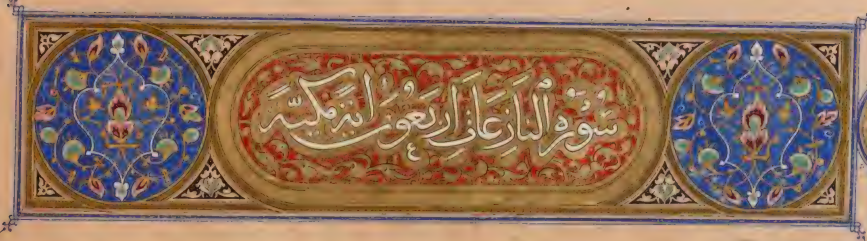 سورة النازعات اربعون اية مكية